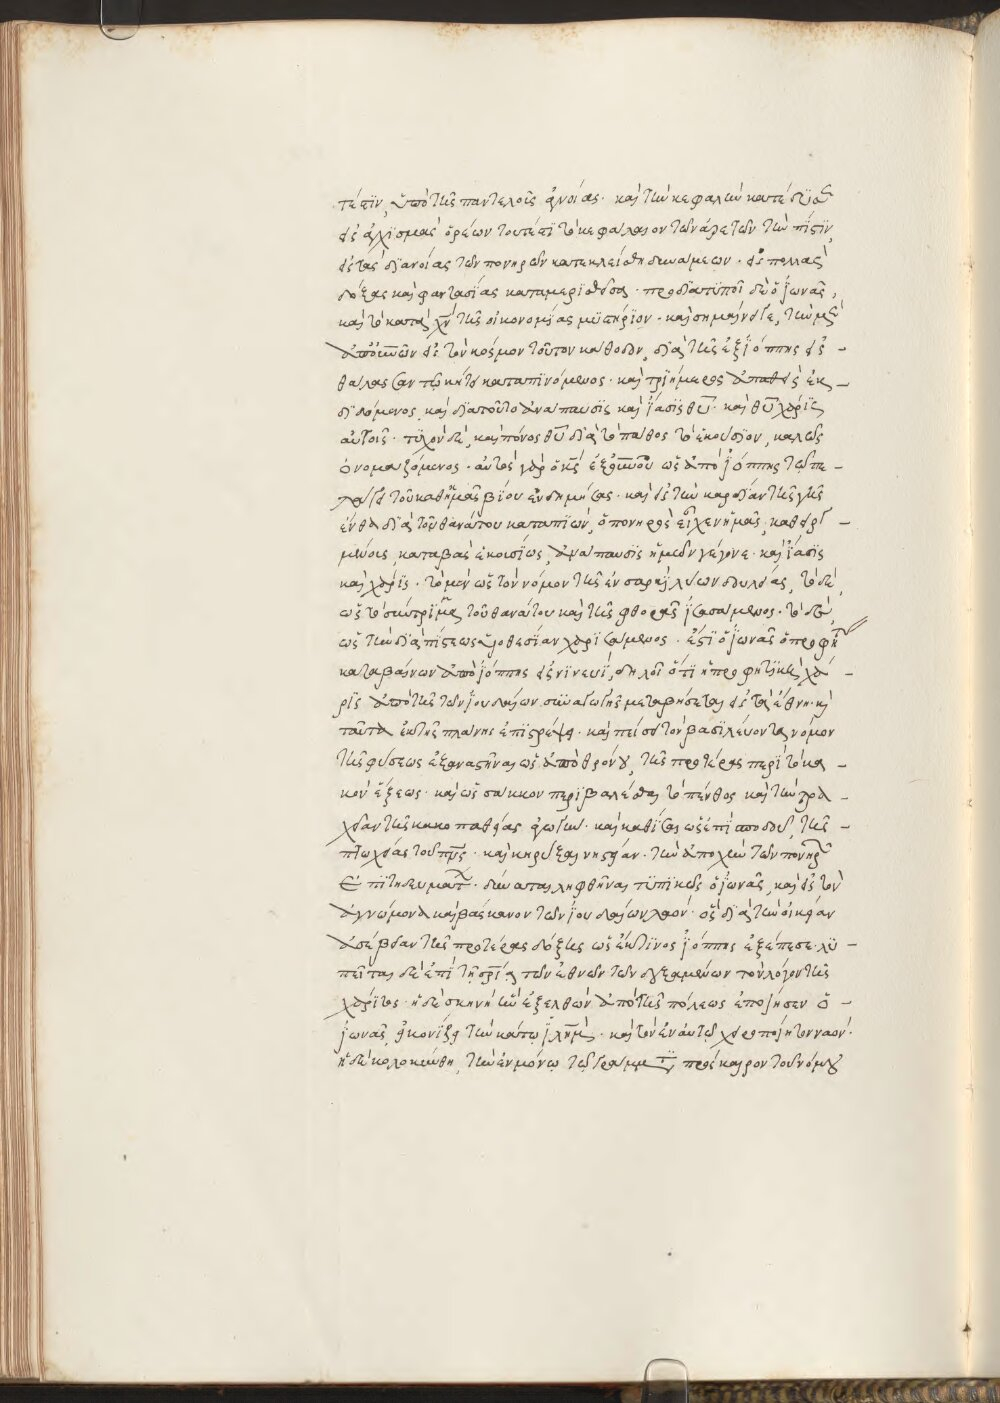 τέστιν, ὑπὸ τῆς παντελοῦς ἀγνοίας· καὶ τὴν κεφαλὴν κατέδυσεν
εἰς σχισμὰς ὀρέων τουτέστι τὸ κεφάλαιον τῶν ἀρετῶν τὴν πίστιν,
εἰς τὰς διανοίας τῶν πονηρῶν κατεκλείσθη δυνάμεων· εἰς πολλὰς
δόξας καὶ φαντασίας καταμερισθεῖσα· προδιατυποῖ δὲ ὁ ἰωνᾶς,
καὶ τὸ κατὰ χν τῆς οἰκονομίας μυστήριον· καὶ σημαίνει, τὴν μὲν
ἀπ' οὐνῶν εἰς τὸν κόσμον τοῦτον κάθοδον, διὰ τῆς ἐξ ἰόππης εἰς
θάλασσαν τῷ κήτει καταπινόμενος· καὶ τριήμερος ἀπαθεὶς ἐκ-
διδόμενος, καὶ διατοῦτο ἀνάπαυσις καὶ ἴασις θυ· καὶ θυ χάρις
αὐτοῖς· τυχὸν δὲ, καὶ πόνος θυ διὰ τὸ πάθος τὸ ἑκούσιον, καλῶς
ὀνομαζόμενος· αὐτὸς γὰρ ὁ κς ἐξ οὐνοῦ ὡς ἀπὸ ἰόππης τῷ πε-
λάγει τοῦ καθ' ἡμᾶς βίου ἐνδημήσας· καὶ εἰς τὴν καρδίαν τῆς γῆς
ἔνθα διὰ τοῦ θανάτου καταπιὼν, ὁ πονηρὸς εἶχεν ἡμᾶς, καθειργ-
μένους, καταβὰς ἑκουσίως, ἀνάπαυσις ἡμῶν γέγονε· καὶ ἴασις
καὶ χάρις· τὸ μὲν ὡς τὸν νόμον τῆς ἐν σαρκὶ λύων δουλείας, τὸ δὲ,
ὡς τὸ σύντριμμα τοῦ θανάτου καὶ τῆς φθορᾶς ἰασάμενος· τὸ δὲ,
ὡς τὴν διὰ πίστεως υἱοθεσίαν χαρισάμενος· ἔτι ὁ ἰωνᾶς ὁ προφήτης
καταβαίνων ἀπὸ ἰόππης εἰς νινευὶ, δηλοῖ ὅτι ἡ προφητικὴ χά-
ρις ἀπὸ τῆς τῶν ἰουδαίων συναγωγῆς μεταβήσεται εἰς τὰ ἔθνη· καὶ
ταῦτα ἐκ τῆς πλάνης ἐπιστρέψει· καὶ πείσει τὸν βασιλεύοντα νόμον
τῆς φύσεως ἐξαναστῆναι ὡς ἀπὸ θρόνου, τῆς προτέρας περὶ τὸ κα-
κὸν ἕξεως· καὶ ὡς σάκκον περιβαλέσθαι τὸ πένθος καὶ τὴν τρα-
χεῖαν τῆς κακοπαθείας ἀγωγήν· καὶ καθίσαι ὡς ἐπὶ σποδοῦ, τῆς
πτωχείας τοῦ πνς· καὶ κηρύξαι νηστείαν· τὴν ἀποχὴν τῶν πονηρῶν
ἐπιτηδευμάτων· δύναται ληφθῆναι τυπικῶς ὁ ἰωνᾶς, καὶ εἰς τὸν
ἀγνώμονα καὶ βάσκανον τῶν ἰουδαίων λαόν· ὃς διὰ τὴν οἰκείαν
ἀσέβειαν τῆς προτέρας δόξης ὡς ἔκ τινος ἰόππης ἐξέπεσε· λυ-
πεῖται δὲ ἐπὶ τῇ σρίᾳ τῶν ἐθνῶν τῶν δεξαμένων τὸν λόγον τῆς
χάριτος· ἡ δὲ σκηνὴ ἣν ἐξελθὼν ἀπὸ τῆς πόλεως ἐποίησεν ὁ-
ἰωνᾶς, εἰκονίζει τὴν κάτω ἰλημ· καὶ τὸν ἐν αὐτῷ χειροποίητον ναόν·
ἡ δὲ κολοκύνθη, τὴν ἐν μόνῳ τῷ γράμματι πρόσκαιρον τοῦ νόμου